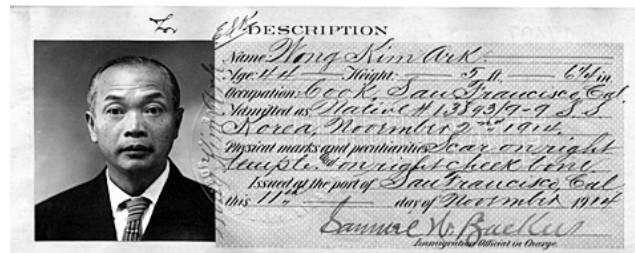 DESCRIPTION
Name: Wong Kim Ark.
Age: 44 Height: 5 ft., 6¼ in.
Occupation: Cook, San Francisco, Cal
Admitted as Native # 13393/9-9 S S
Korea, November 2nd 1914.
Physical marks and peculiarities Scar on right
temple. on right cheek bone.
Issued at the port of San Francisco, Cal
this 11th day of November 1914
Samuel W. Backus
Immigration Official in Charge.